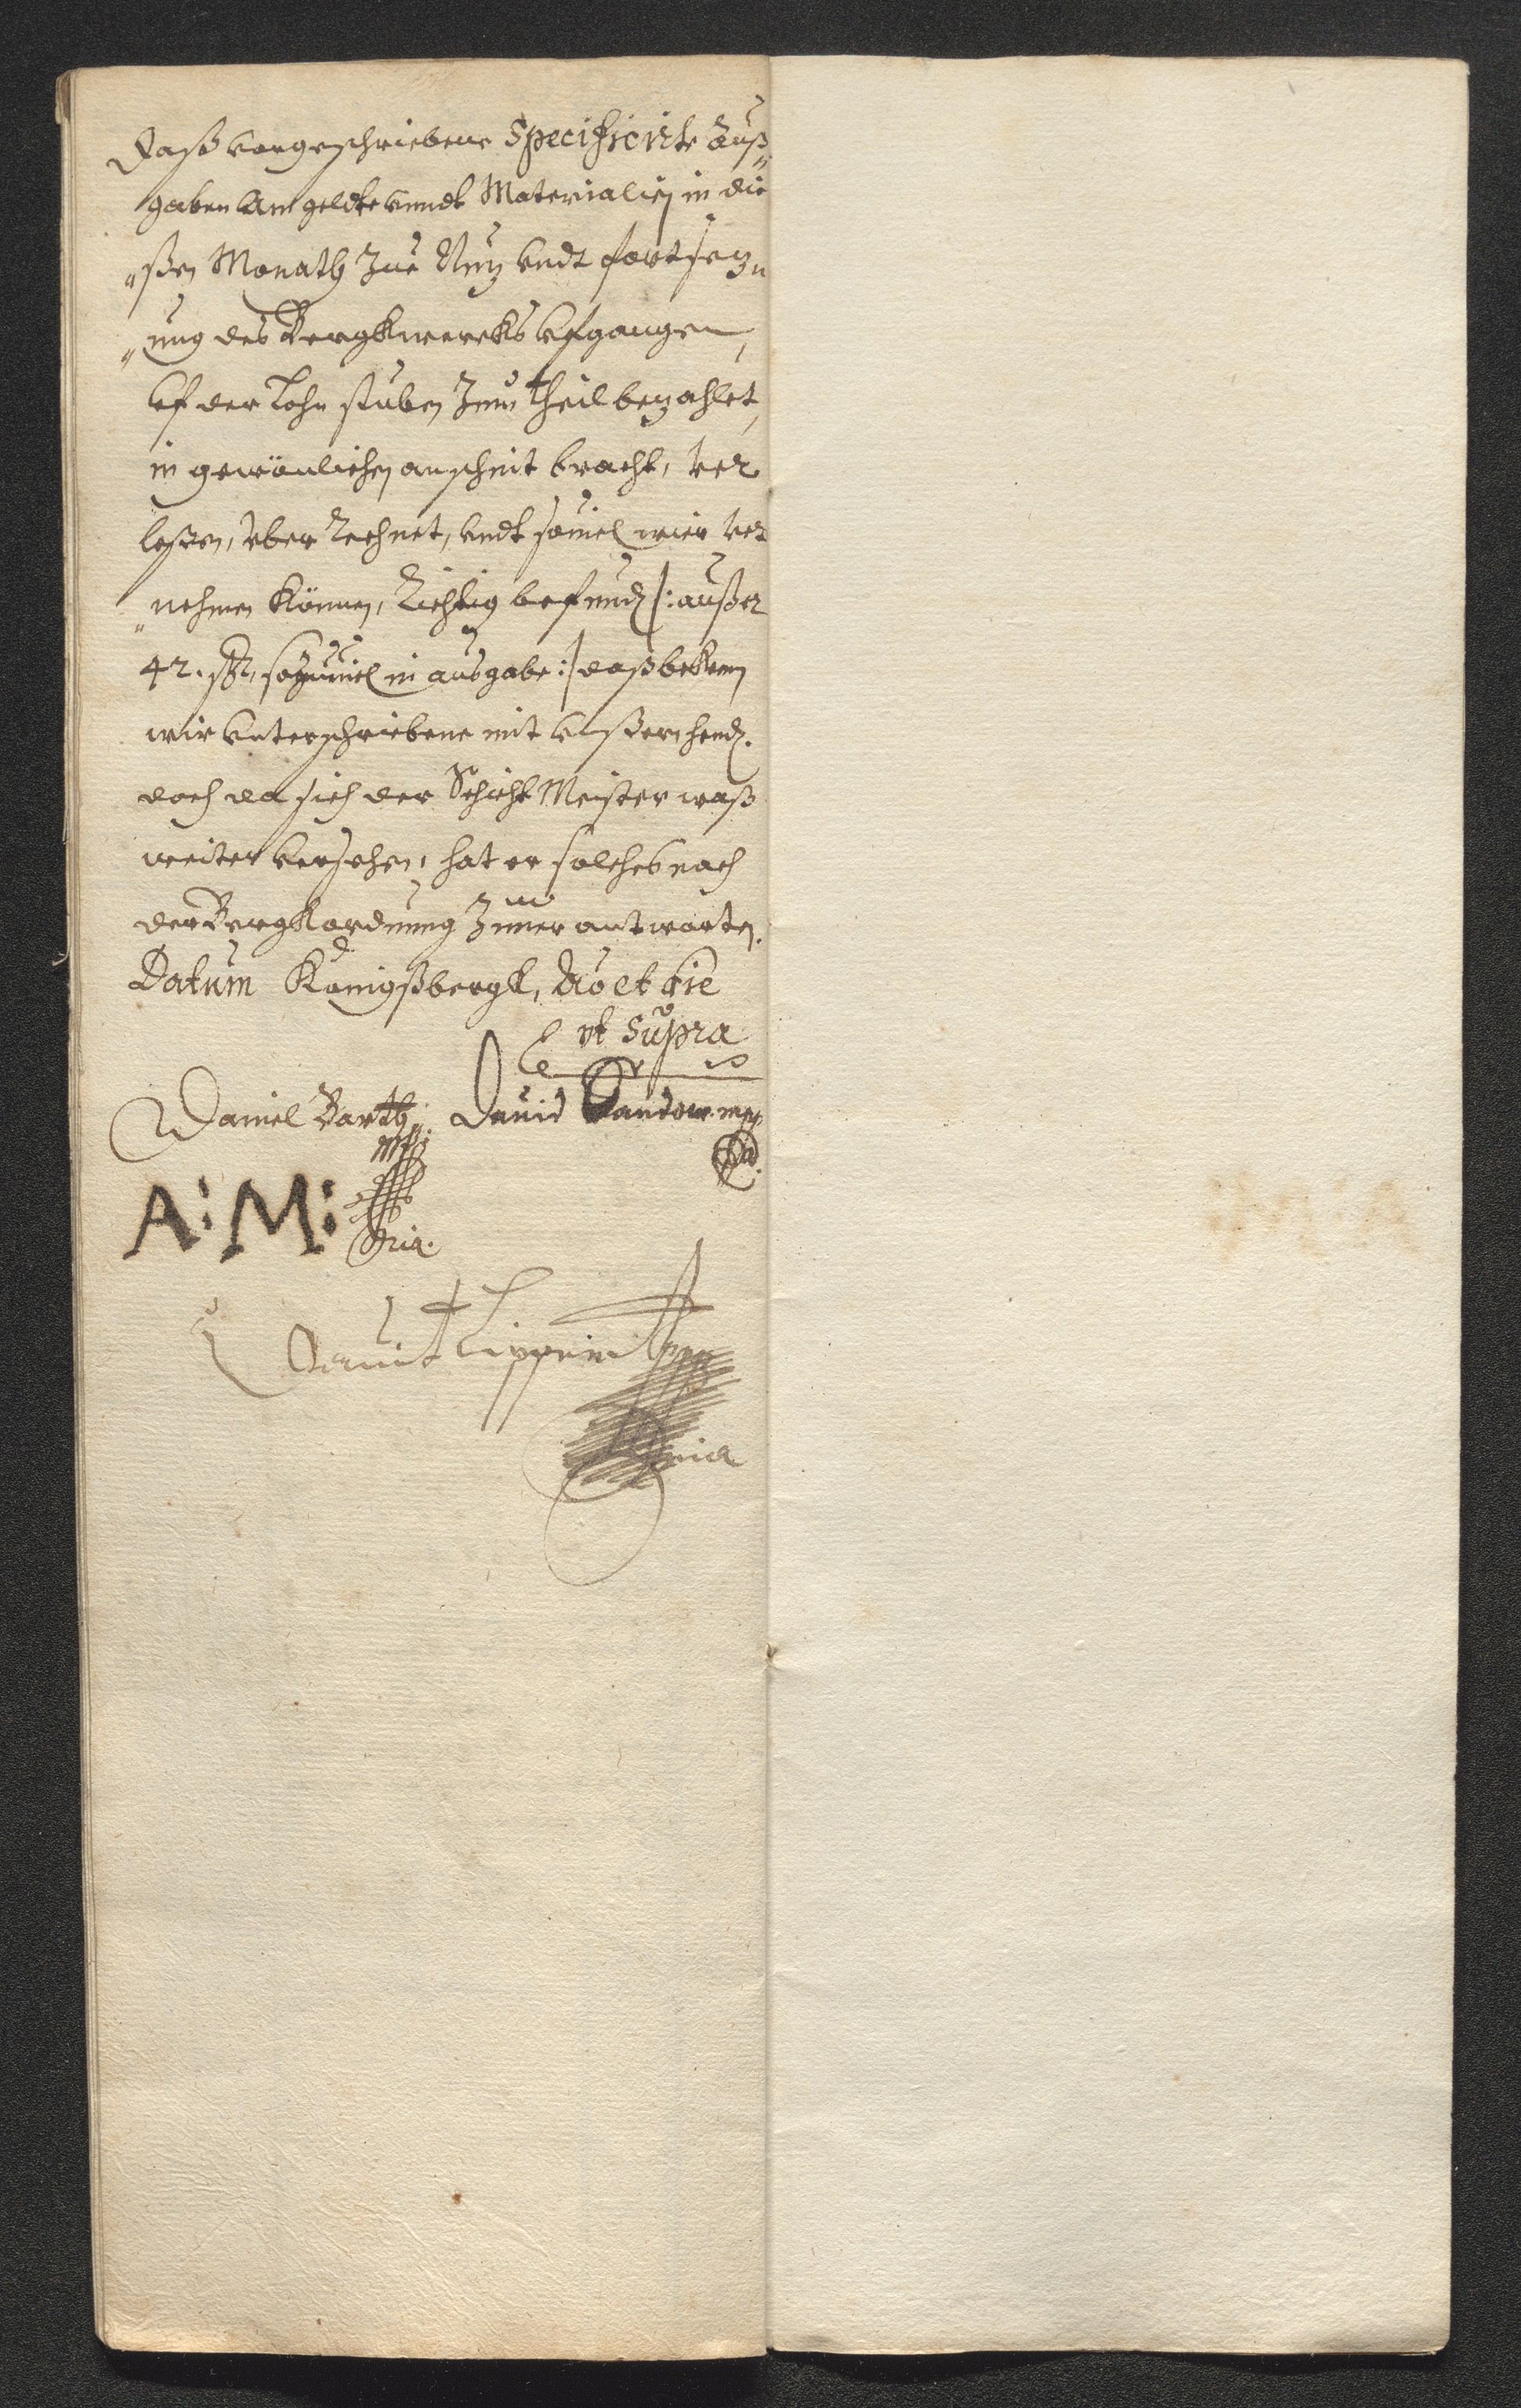 Daß vorgeschriebene Specificirte Auß„
gaben Am geldte vnndt Materialien in die„
„ßen Monath Zue Nuz vndt fortsez„
„ung des Bergkwercks vfgangen,
vf der Lohn stuben Zum theil bezahlet,
in gewönlichen anschnit bracht, ver
leßen, vber Rechnet, vndt souiel wier ver
„nehmen können, Richtig befund /: außer
42. ß, so Zuuiel in ausgabe :/ daß bekenn
wir vnterschriebene mit vnßern hend.
doch da sich der Schicht Meister waß
weiter versehen, hat er solches nach
der Bergkordnung Zuuer antworten.
Datum Königßbergk, Ao et die
vt Supra
Daniel Barth
mp
Dauid
A: M:
ria.
Dauit
ria